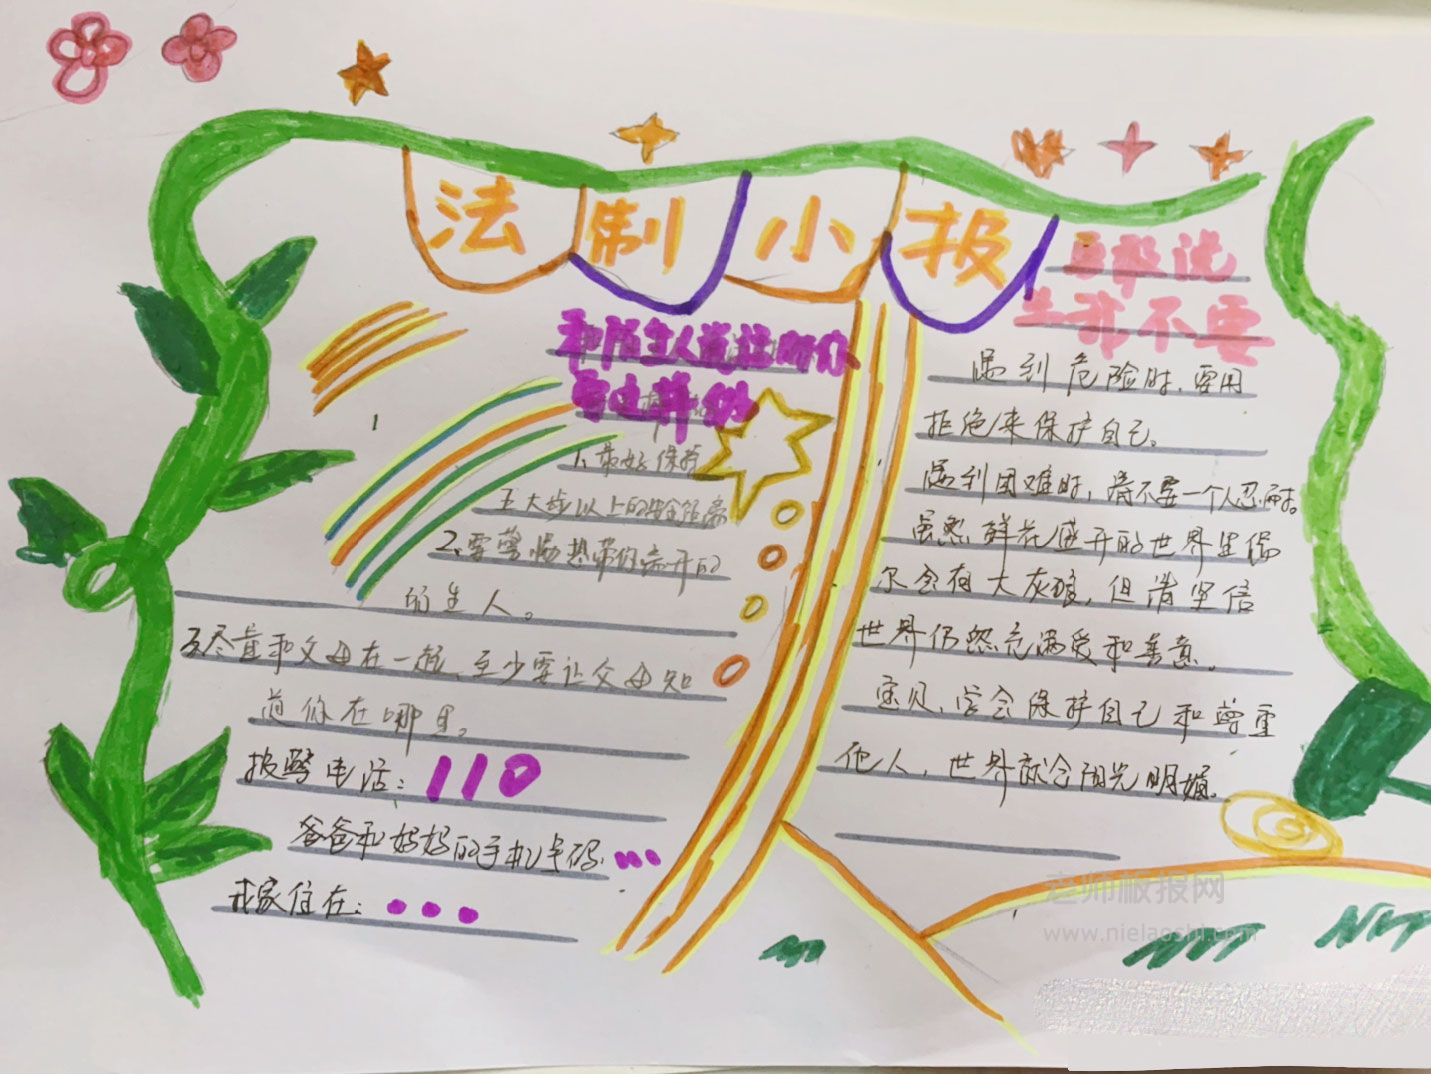 法制小报
和陌生人说话时你
应这样做
1、带好保持
五大步以上的安全距离
2、要警惕想带你离开的
陌生人。
3尽量和父母在一起、至少要让父母知
道你在哪里。
报警电话:110
爸爸和妈妈的手机号码:...
我家住在:...
说
不要
遇到危险时、要用
拒绝来保护自己。
遇到困难时,请不要一个人忍耐。
虽然鲜花盛开的世界里偶
尔会有大灰狼,但请坚信
世界仍然充满爱和善意。
宝贝、学会保护自己和尊重
他人,世界就会阳光明媚。
老师板报网
www.nielaoshi.com